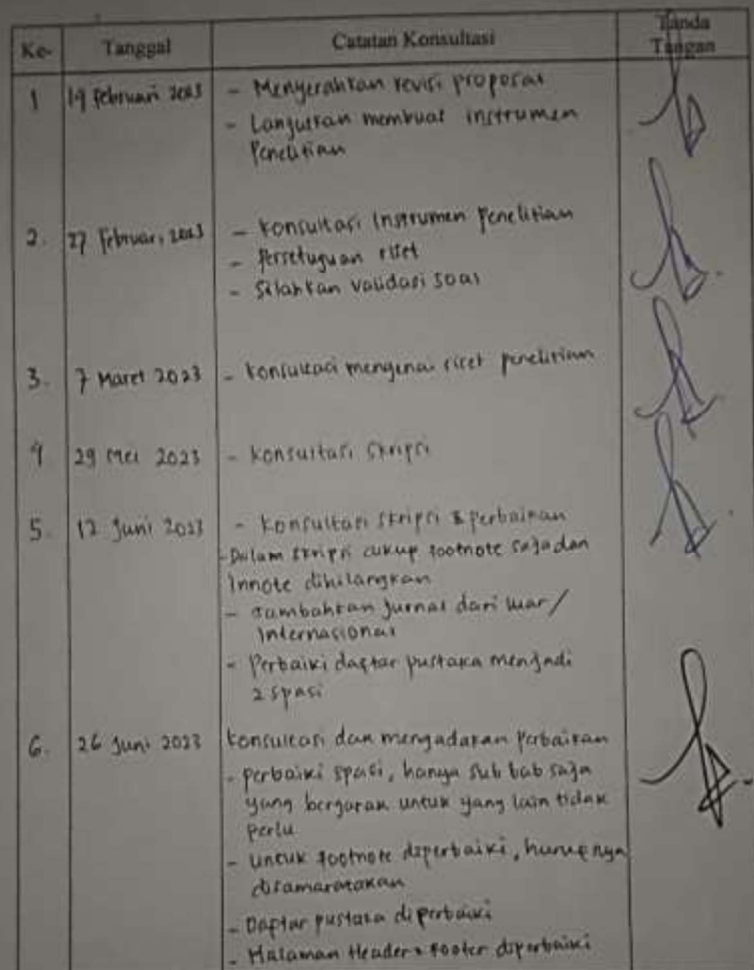 Ke- Tanggal Catatan Konsultasi Tanda
Tangan
1 19 Februari 2023 - Menyerahkan revisi proposal
- Lanjutkan membuat instrumen
Penelitian
2. 27 Februari 2023 - Konsultasi Instrumen Penelitian
- Persetujuan riset
- Silahkan validasi soal
3. 7 Maret 2023 - Konsultasi mengenai riset penelitian
4 29 Mei 2023 - Konsultasi Skripsi
5. 12 Juni 2023 - Konsultasi skripsi & perbaikan
- Dalam skripsi cukup footnote saja dan
Innote dihilangkan
- Tambahkan Jurnal dari luar/
Internasional
- Perbaiki daftar pustaka menjadi
2 spasi
6. 26 Juni 2023 Konsultasi dan mengadakan Perbaikan
- perbaiki spasi, hanya sub bab saja
yang berjarak untuk yang lain tidak
perlu
- Untuk footnote diperbaiki, hurufnya
disamaratakan
- Daftar pustaka diperbaiki
- Halaman Header & footer diperbaiki